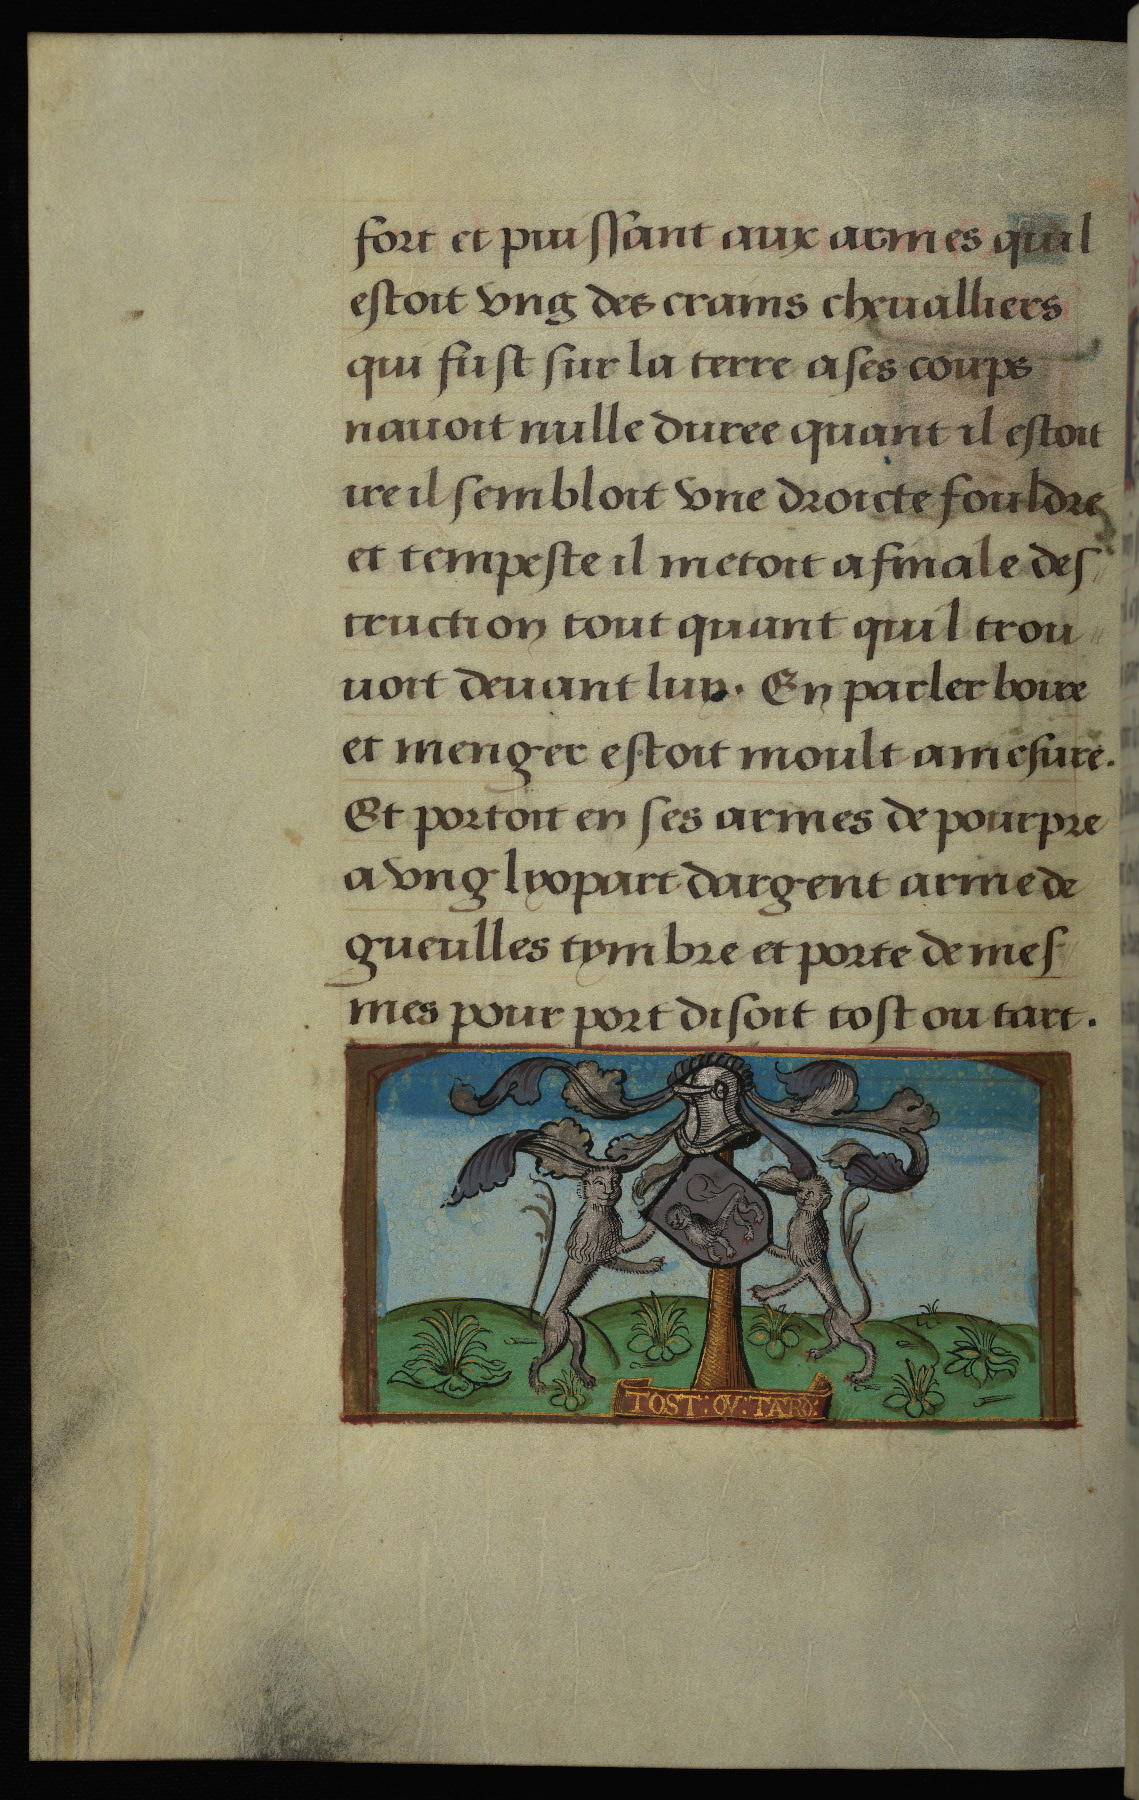 fort et puissant aux armes quil
estoit vng des crains cheualliers
qui fust sur la terre a ses coups
nauoit nulle duree quant il estoit
ire il sembloit vne droicte fouldre
et tempeste il metoit a finale des
truction tout quant quil trou
uoit deuant luy. En parler boire
et menger estoit moult amesure.
Et portoit en ses armes de pourpre
a vng lyopart dargent arme de
gueulles tymbre et porte de mes
mes pour port disoit tost ou tart.
TOST : OV : TARD :